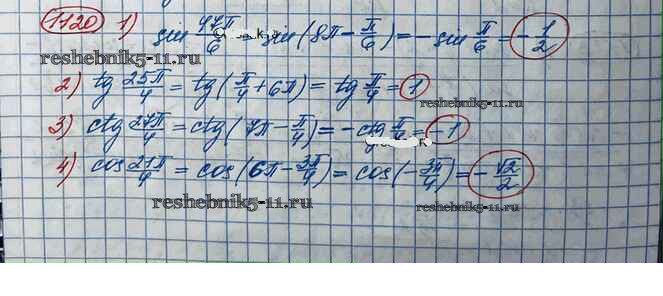 1120 1) sin 47π/6 = sin(8π - π/6) = - sin π/6 = - 1/2
reshebnik5-11.ru
2) tg 25π/4 = tg(π/4 + 6π) = tg π/4 = 1
reshebnik5-11.ru
3) ctg 27π/4 = ctg(7π - π/4) = - ctg π/4 = - 1
4) cos 21π/4 = cos(6π - 3π/4) = cos(- 3π/4) = - √2/2
reshebnik5-11.ru reshebnik5-11.ru